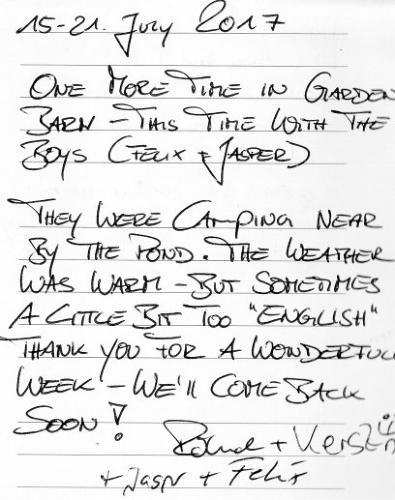 15-21. July 2017
ONE MORE TIME IN GARDEN
BARN - THIS TIME WITH THE
BOYS (FELIX + JASPER)
THEY WERE CAMPING NEAR
BY THE POND. THE WEATHER
WAS WARM - BUT SOMETIMES
A LITTLE BIT TOO "ENGLISH"
THANK YOU FOR A WONDERFUL
WEEK - WE'LL COME BACK
SOON!
+ Kerstin
+ Jasper + Felix